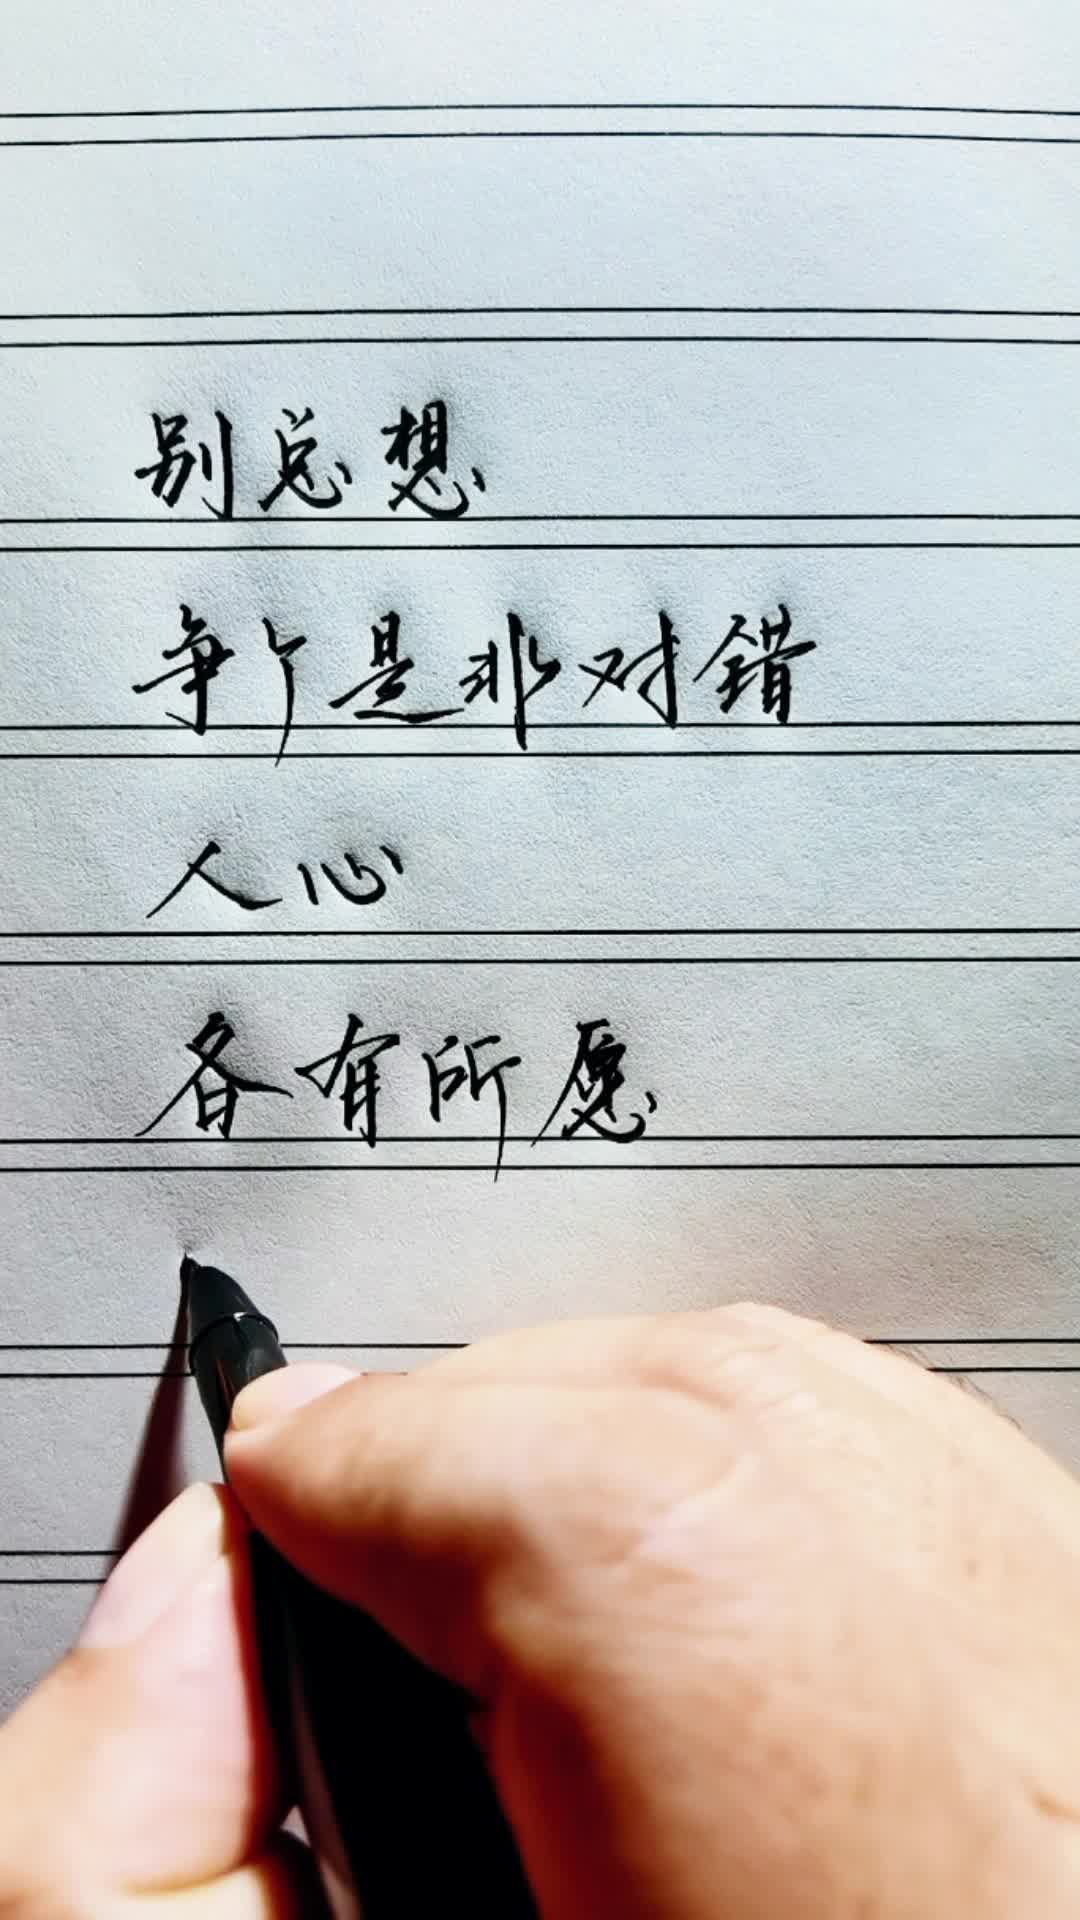 别总想
争个是非对错
人心
各有所愿